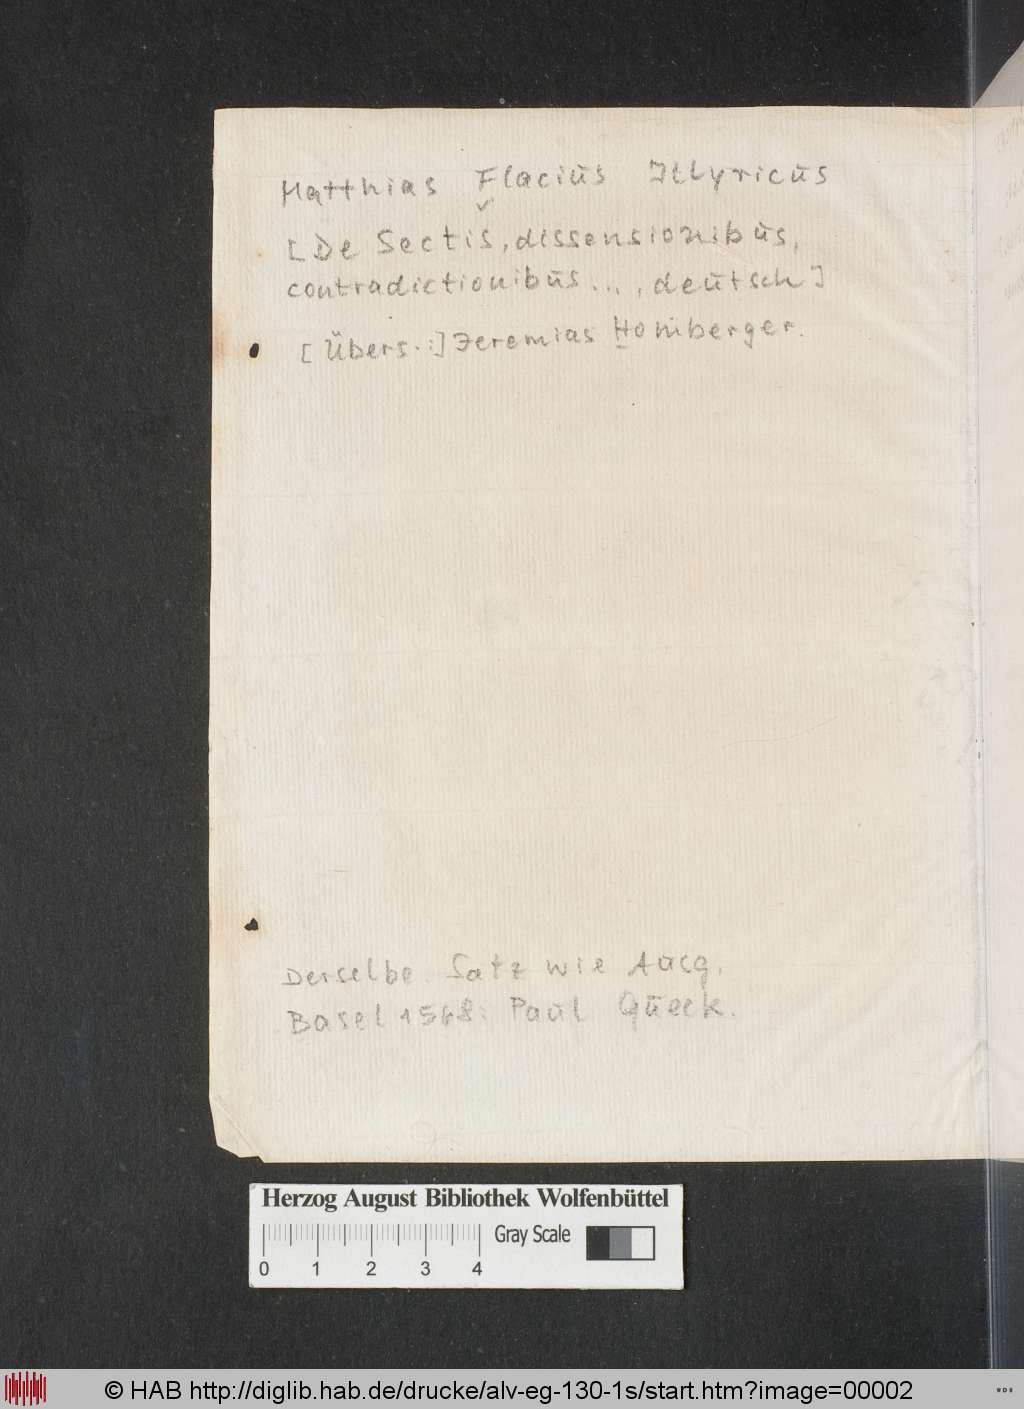 Matthias Flacius Illyricus
[De Sectis, dissensionibus,
contradictionibus..., deutsch]
[Übers.:] Jeremias Homberger.
Derselbe Satz wie Ausg.
Basel 1568: Paul Queck.
Herzog August Bibliothek Wolfenbüttel
Gray Scale
0 1 2 3 4
© HAB http://diglib.hab.de/drucke/alv-eg-130-1s/start.htm?image=00002